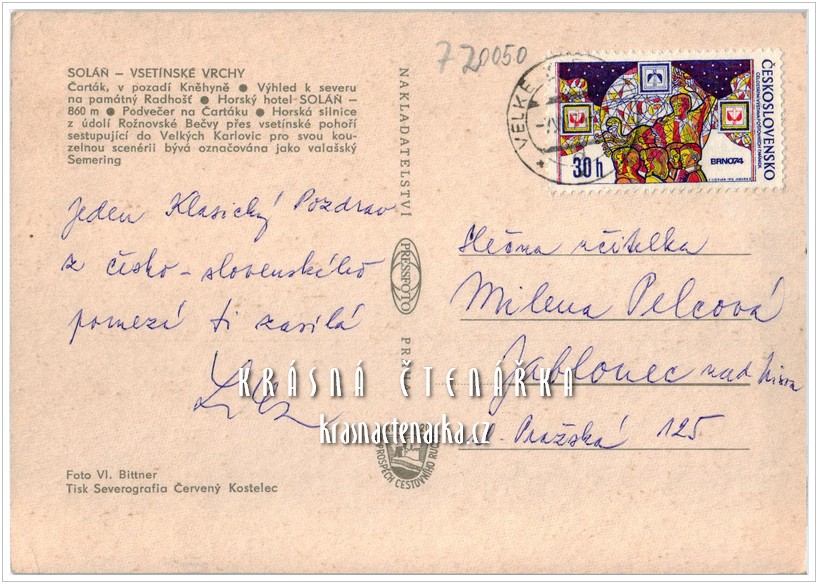 SOLÁŇ – VSETÍNSKÉ VRCHY
Čarták, v pozadí Kněhyně ● Výhled k severu
na památný Radhošť ● Horský hotel SOLÁŇ –
860 m ● Podvečer na Čartáku ● Horská silnice
z údolí Rožnovské Bečvy přes vsetínské pohoří
sestupující do Velkých Karlovic pro svou kou-
zelnou scenérii bývá označována jako valašský
Semering
Jeden Klasický Pozdrav
z česko-slovenského
pomezí ti zasílá
Foto Vl. Bittner
Tisk Severografia Červený Kostelec
NAKLADATELSTVÍ
PRESSFOTO
PRAHA
720050
VELKÉ
ČESKOSLOVENSKO
30 h
BRNO74
Slečna učitelka
Milena Pelcová
Jablonec nad Nisou
ul. Pražská 125
KRÁSNÁ ČTENÁŘKA
krasnactenarka.cz